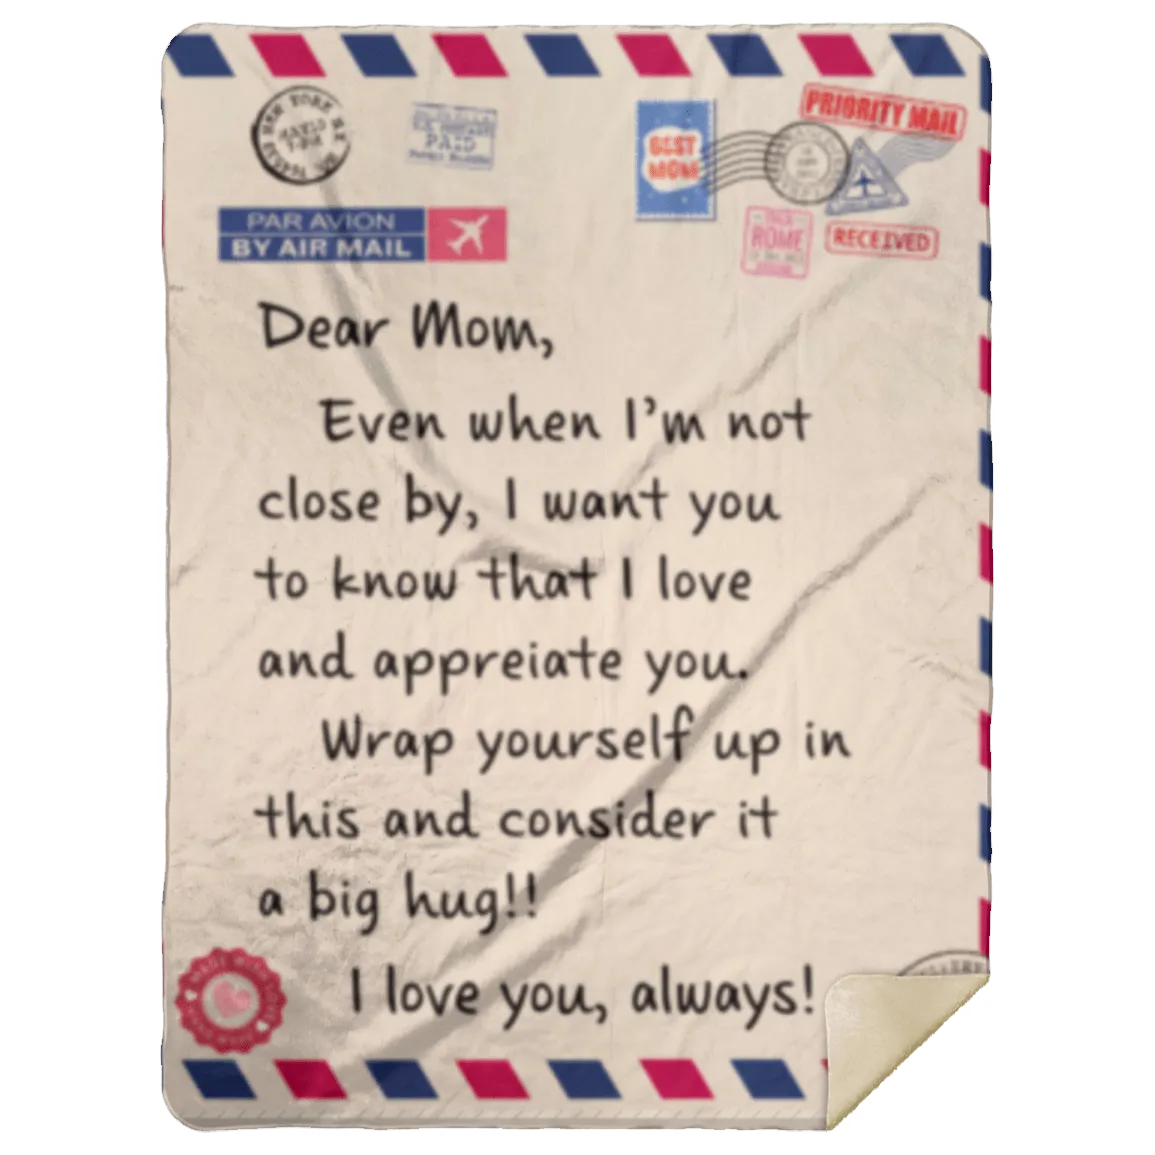 NEW YORK N.Y.
PAID
BEST
MOM
PRIORITY MAIL
ROME
RECEIVED
PAR AVION
BY AIR MAIL
Dear Mom,
Even when I'm not
close by, I want you
to know that I love
and appreiate you.
Wrap yourself up in
this and consider it
a big hug!!
I love you, always!